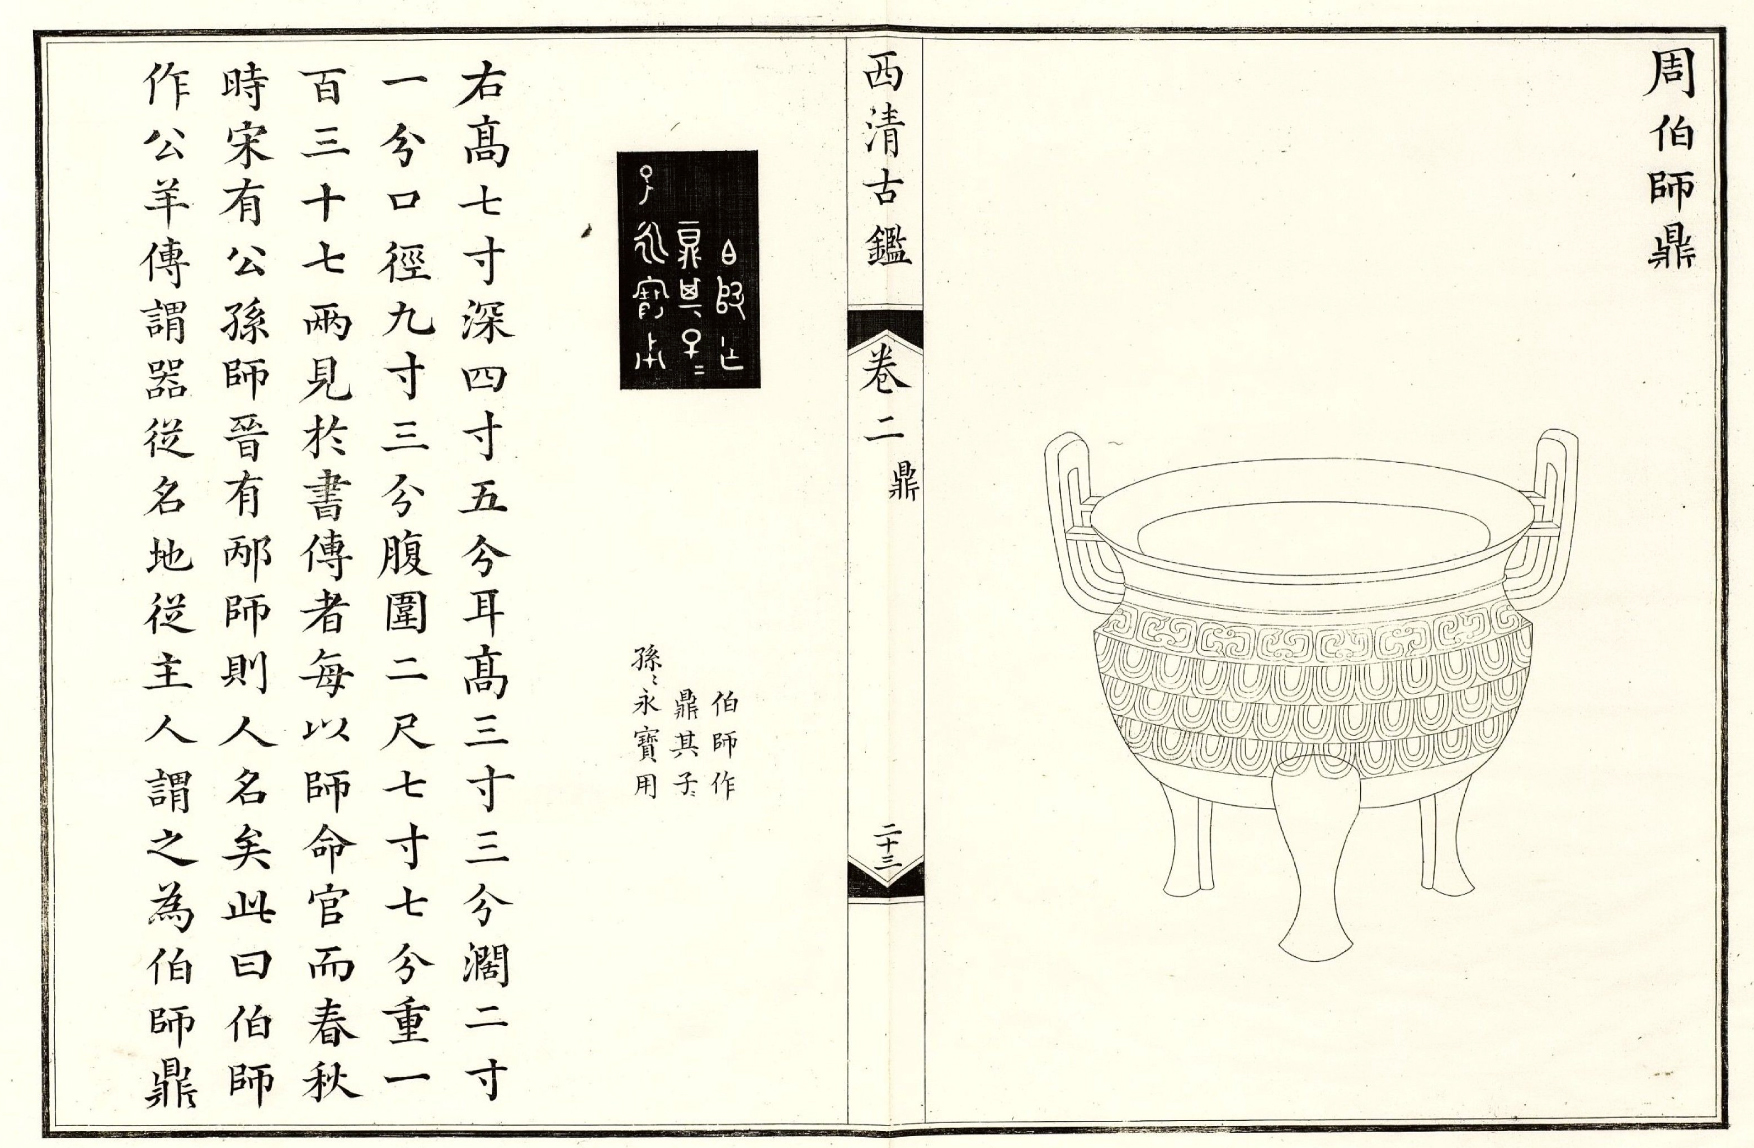 周伯師鼎
西清古鑑
卷二
鼎
二十三
伯師作
鼎其子〻
孫〻永寶用
右高七寸深四寸五分耳高三寸三分濶二寸
一分口徑九寸三分腹圍二尺七寸七分重一
百三十七兩見於書傳者每以師命官而春秋
時宋有公孫師晉有邴師則人名矣此曰伯師
作公羊傳謂器從名地從主人謂之為伯師鼎